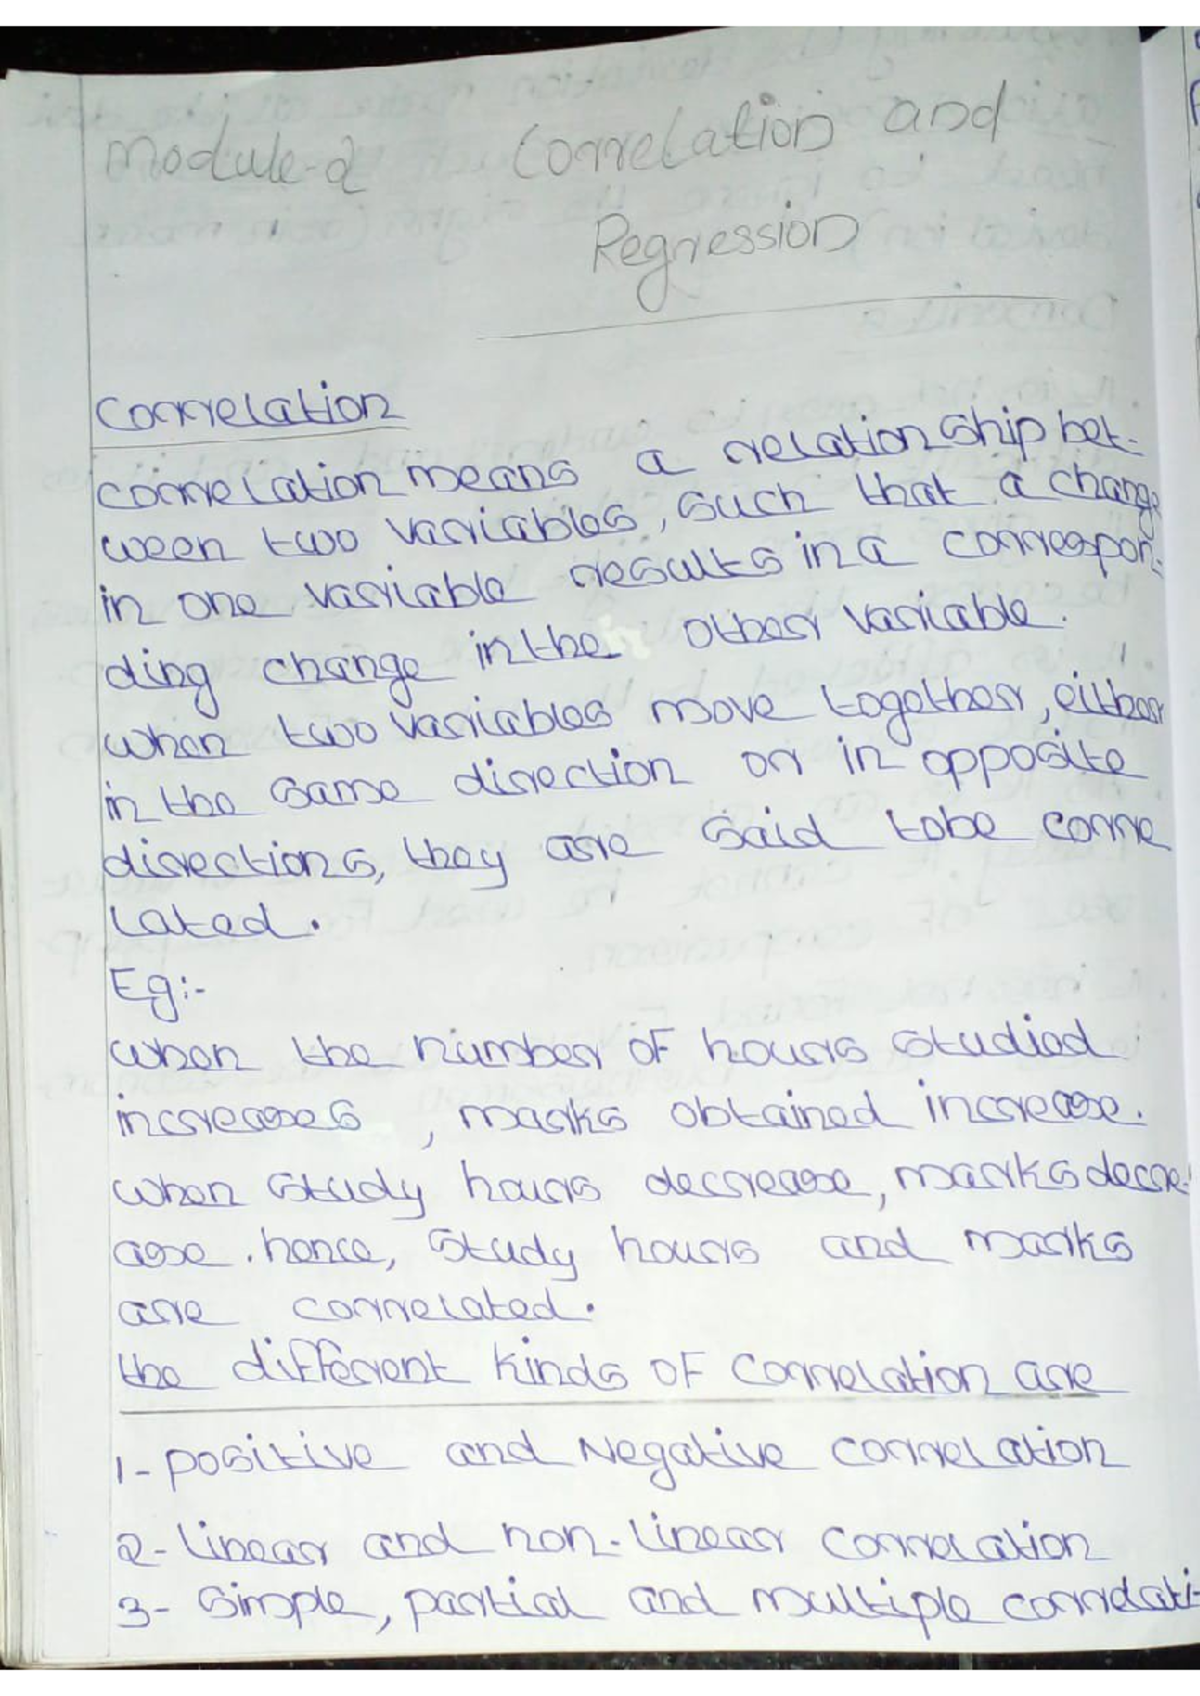 Module-2 Correlation and
Regression
Correlation
Correlation means a relationship bet-
ween two variables, such that a change
in one variable results in a correspon-
ding change in the other variable.
when two variables move together, either
in the same direction or in opposite
directions, they are said tobe corre
lated.
Eg:-
when the number of hours studied
increases, marks obtained increase.
when study hours decrease, marks decre-
ase. hence, study hours and marks
are correlated.
the different kinds of correlation are
1- positive and Negative correlation
2- Linear and non-linear correlation
3- Simple, partial and multiple correlati-